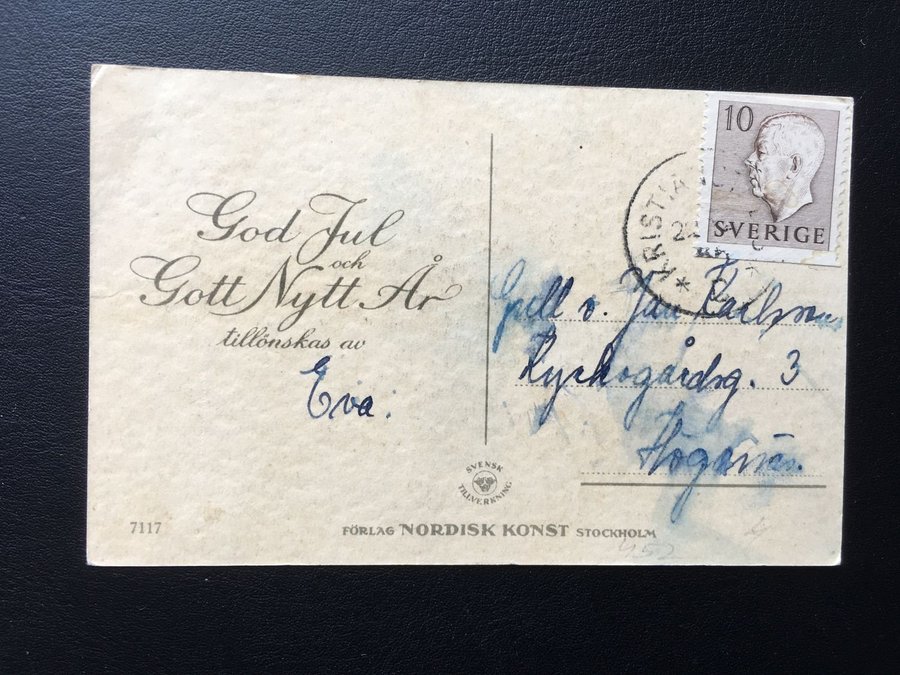 God Jul
och
Gott Nytt År
tillönskas av
Eva.
10
SVERIGE
KRISTIA
Gull o. Jan Karlsson
3
Höganäs.
SVENSK
TILLVERKNING
7117
FÖRLAG NORDISK KONST STOCKHOLM